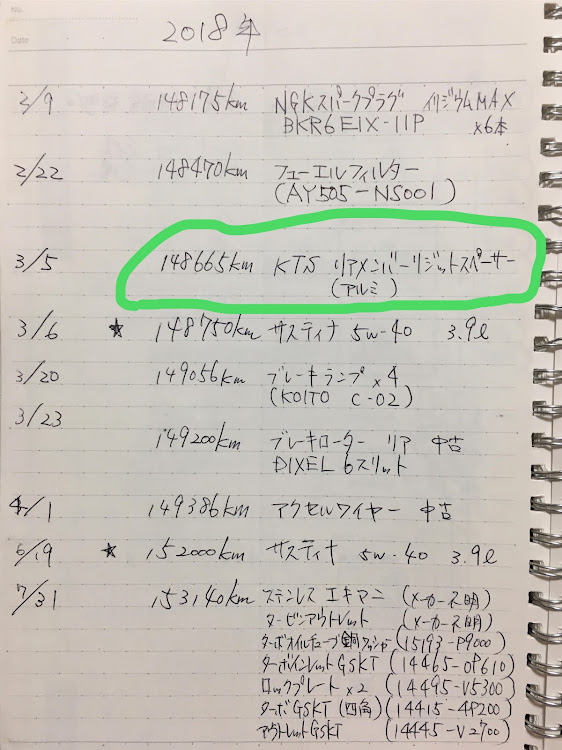 No.
Date
2018年
2/9 148175km NGKスパークプラグ イリジウムMAX
BKR6EIX-11P ×6本
2/22 148470km フューエルフィルター
(AY505-NS001)
3/5 148665km KTS リアメンバーリジットスペーサー
(アルミ)
3/6 ★ 148750km サスティナ 5w-40 3.9ℓ
3/20 149056km ブレーキランプ×4
(KOITO C-02)
3/23
149200km ブレーキローター リア 中古
DIXEL 6スリット
4/1 149386km アクセルワイヤー 中古
6/19 ★ 152000km サスティナ 5w-40 3.9ℓ
7/31 153140km ステンレス エキマニ (メーカー不明)
タービンアウトレット (メーカー不明)
ターボオイルチューブ銅ワッシャ(15193-P9000)
ターボインレットGSKT (14465-0P610)
ロックプレート×2 (14495-V5300)
ターボGSKT (四角) (14415-4P200)
アウトレットGSKT (14445-V2700)